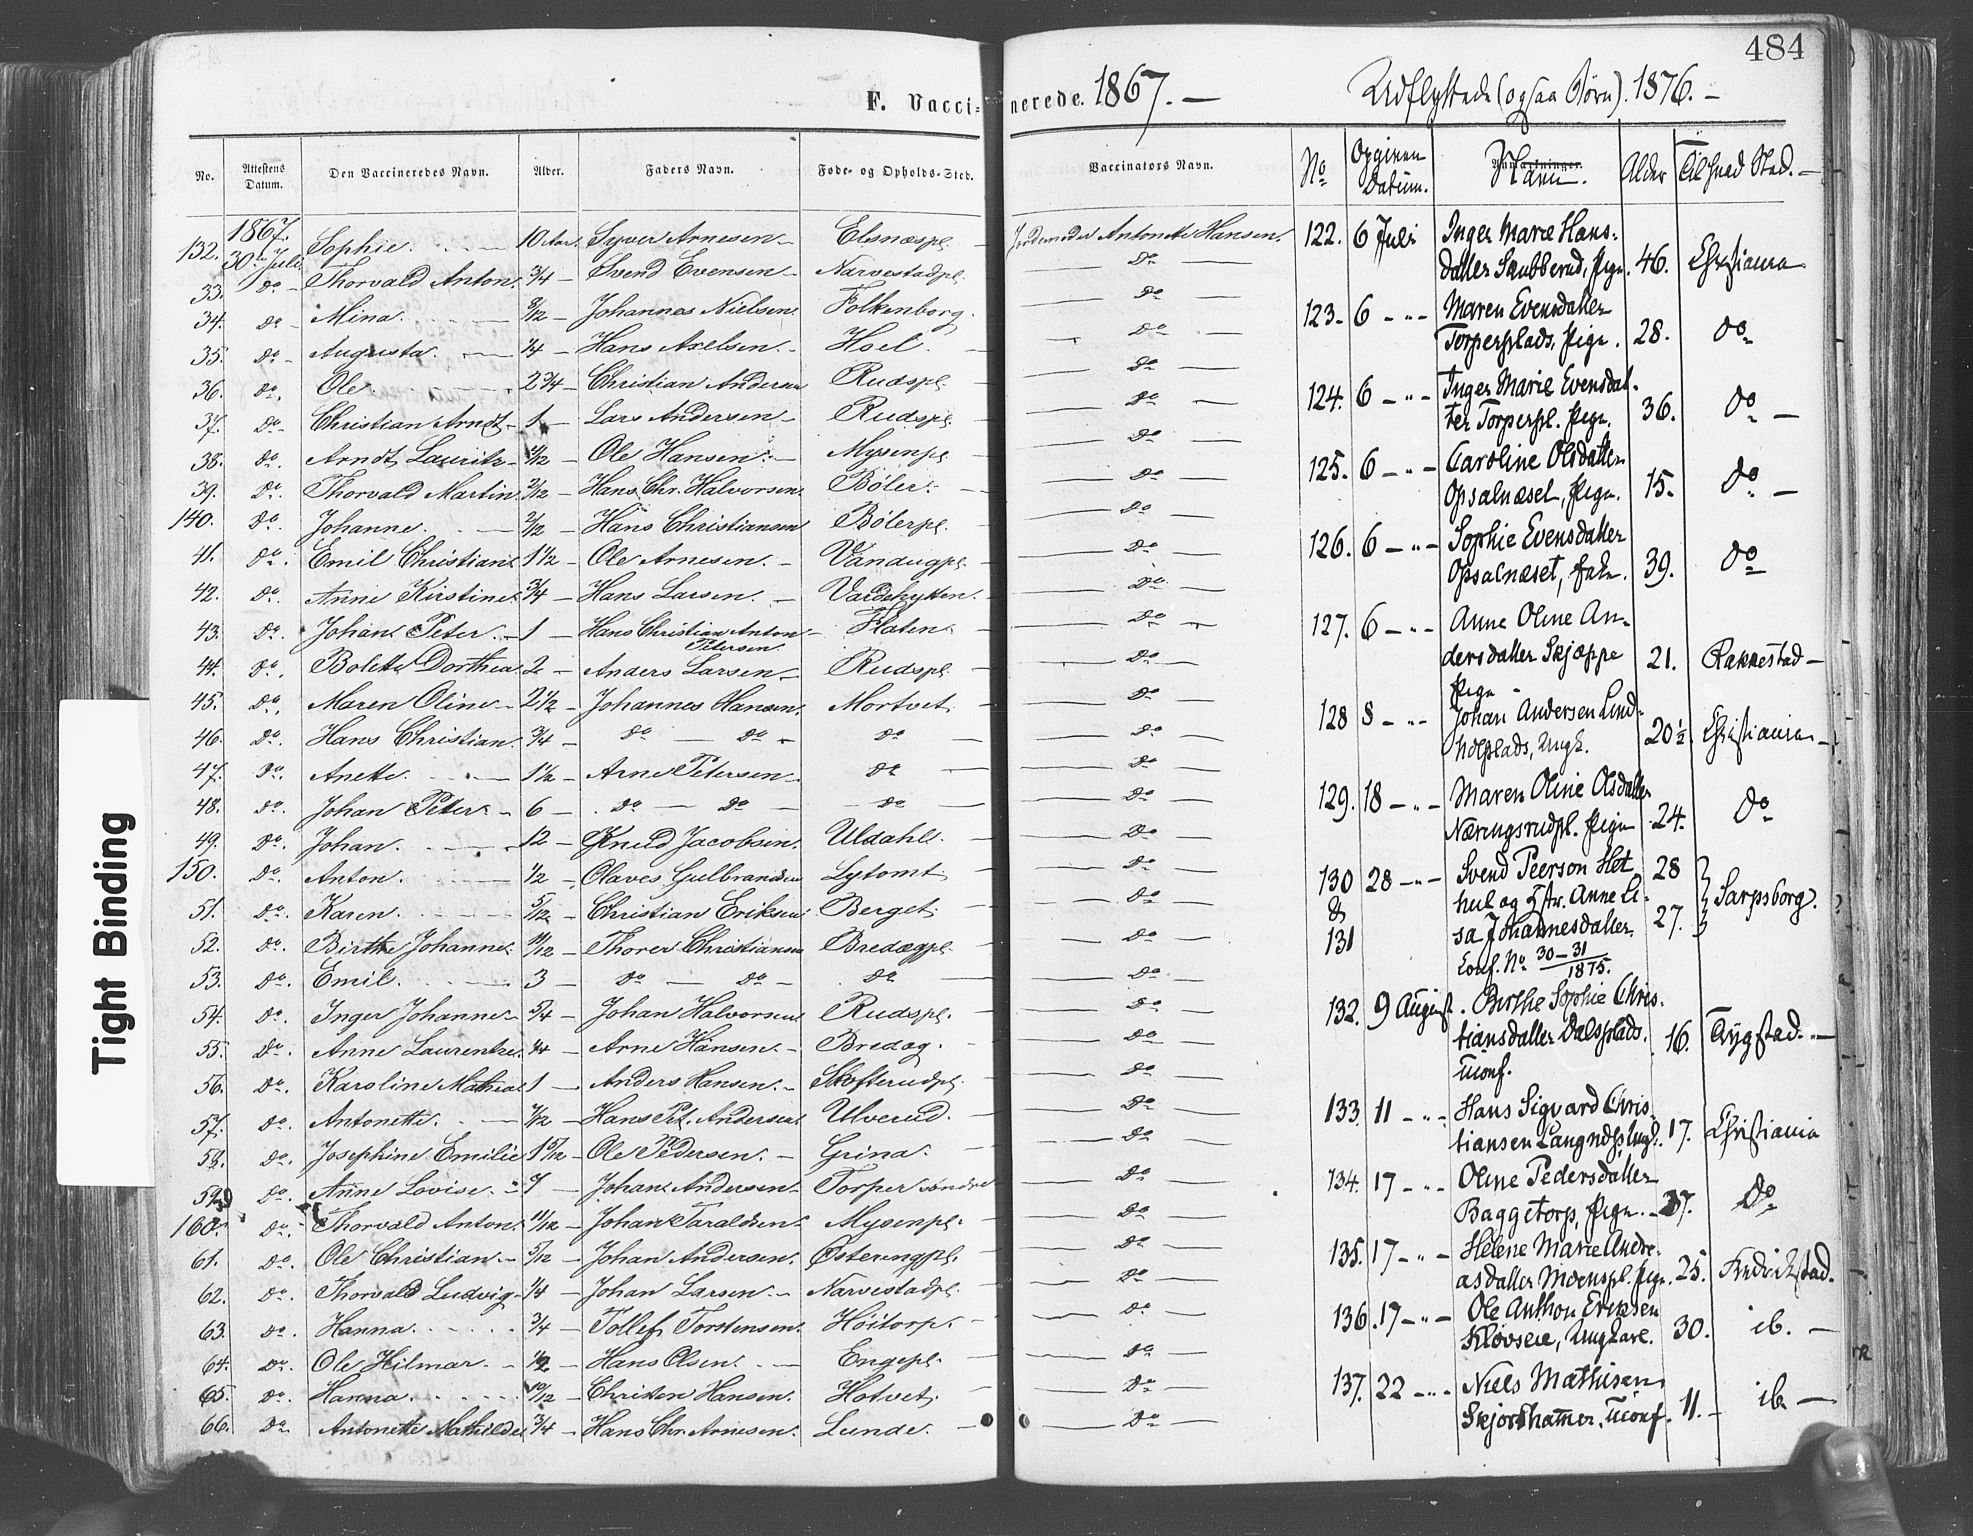 484
F. Vaccinerede. 1867. —
Udflyttede (ogsaa Børn). 1876. —
No. Attestens Datum. Den Vaccineredes Navn. Alder. Faders Navn. Føde- og Opholds-Sted. Vaccinators Navn.
1867.
132. 30te Juli Sophie. 10 Aar. Syver Arnesen Elsnæspl. Jordemoder Antonette Hansen.
33. do Thorvald Anton. 3/4 Svend Evensen Narvestadpl. do
34. do Mina. 8/12 Johannes Nielsen Folkenborg. do
35. do Augusta. 1/4 Hans Axelsen. Hoel. do
36. do. Ole 2 3/4 Christian Andersen Rudspl. do
37. do Christian Arndt 1 Lars Andersen Rudspl. do
38. do. Arndt Lauritz /12 Ole Hansen. Mysenpl. do
39. do. Thorvald Martin /12 Hans Chr. Halvorsen. Bøler. do
140. do. Johanne. Hans Christiansen Bølerpl. do
41. do. Emil Christian 1 1/2 Ole Arnesen. do
42. do. Anne Kirstine. 3/4 Hans Larsen. do
43. do. Johan Peter. 1 Hans Christian Anton Petersen. Flaten. do
44. do. Bolette Dorthea 2 Anders Larsen Rudspl. do
45. do. Maren Oline 2 1/2 Johannes Hansen. Mortvet. do
46. do. Hans Christian. 3/4 do — do do do
47. do. Anette. 1 1/2 Arne Petersen do do
48. do. Johan Peter. 6 do — do do do
49. do. Johan. 12 Knud Jacobsen. Uldahl. do
150. do. Anton. 1/2 Olaves Gulbrandsen Lytomt do
51. do. Karen. 5/12 Christian Eriksen Berget. do
52. do. Birthe Johanne. 11/12 Thorer Christiansen Bredægpl. do
53. do. Emil. 3 do — do do do
54. do. Inger Johanne 5/4 Johan Halvorsen Rudspl. do
55. do. Anne Laurentze. /4 Arne Hansen. Bredæg. do
56. do. Karoline Mathea 1 Anders Hansen. Skofterudpl. do
57. do. Antonette. Hans Pet. Andersen Ulverud. do
58. do. Josephine Emilie 1 5/12 Ole Pedersen. Grina. do
59. do. Anne Lovise. 7 Johan Andersen Torper søndre do
160. do. Thorvald Anton. 11/12 Johan Taraldsen. Mysenpl. do
61. do. Ole Christian. 5/12 Johan Andersen. Østerengpl. do
62. do. Thorvald Ludvig 1/4 Johan Larsen. Narvestadpl. do
63. do. Hanna. 3/4 Tollef Torstensen. Høitorp. do
64. do. Ole Hilmar. 1/2 Hans Olsen. Engepl. do
65. do. Hanna. 10/12 Christen Hansen. Hotvet. do
66. do. Antonette Mathilde 3/4 Hans Chr. Arnesen. Lunde. do
No Opgiven Datum. Anmærkninger. Navn. Alder Til hvad Sted. —
122. 6 Juli Inger Marie Hans-
datter Snubberud, Pige. 46. Christiania
123. 6 — " — Maren Evensdatter
Torperplads, Pige. 28. do
124. 6 — " — Inger Marie Evensdat-
ter Torperpl. Pige. 36. do —
125. 6 — " — Caroline Olsdatter
Opsalnæset, Pige. 15. do —
126. 6 — " — Sophie Evensdatter
Opsalnæset, 39. do
127. 6 — " — Anne Oline An-
dersdatter Skjæppe 21. Rakkestad —
Pige
128 8 — " — Johan Andersen Lund-
Ungk. 20 1/2 Christiania —
129. 18 — " — Maren Oline Olsdatter
Næringsrudpl. Pige 24. do
130 28 — " — Svend Peerson Het 28
& hul og Hstr. Anne El-
131 sa Johannesdatter. 27. Sarpsborg.
Conf. No 30—31
1875.
132. 9 August. Birthe Sophie Chris-
tiansdatter Dalsplads. 16. Trygstad. —
Uconf.
133. 11 — " — Hans Sigvard Chris-
tiansen 17. Christiania
134. 17 — " — Oline Pedersdatter
Baggetorp, Pige. 37. do
135. 17 — " — Helene Marie Andre-
asdatter Moenspl. Pige. 25. Fredrikstad.
136. 17 — " — Ole Anthon Eriksen
Kløvseie, Ungkarl. 30. ib. —
137. 22 — " — Niels Mathisen
Skjorshammer. Uconf. 11. ib. —
Tight Binding